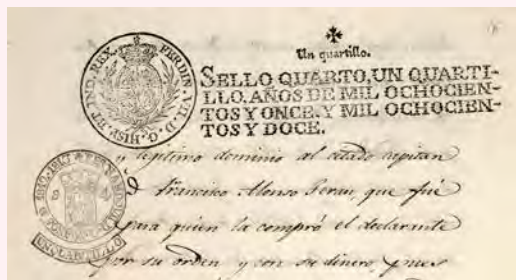 Un quartillo.
FERDIN. VII. D. G. HISP. ET IND. REX.
SELLO QUARTO, UN QUARTI-
LLO. AÑOS DE MIL OCHOCIEN-
TOS Y ONCE. Y MIL OCHOCIEN-
TOS Y DOCE.
y legitimo dominio al citado capitan
Francisco Alonso Teran, que fué
para quien la compró el declarante
por su orden y con su dinero pues